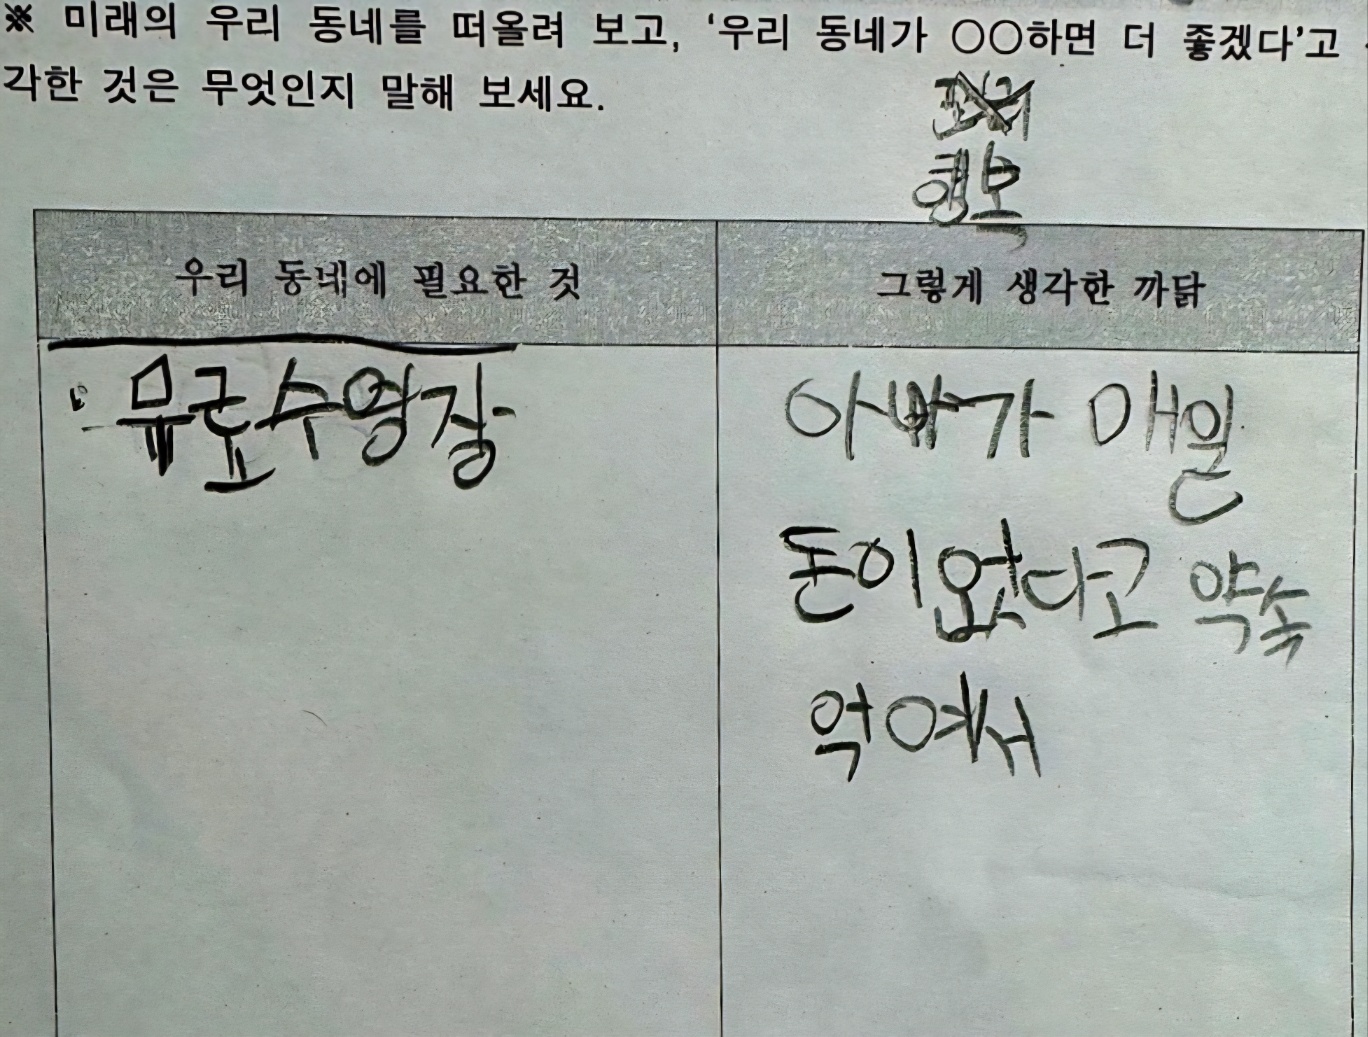 ※ 미래의 우리 동네를 떠올려 보고, '우리 동네가 ○○하면 더 좋겠다'고
각한 것은 무엇인지 말해 보세요.
행복
우리 동네에 필요한 것
그렇게 생각한 까닭
무료수영장
아빠가 매일
돈이없다고 약속
억여서